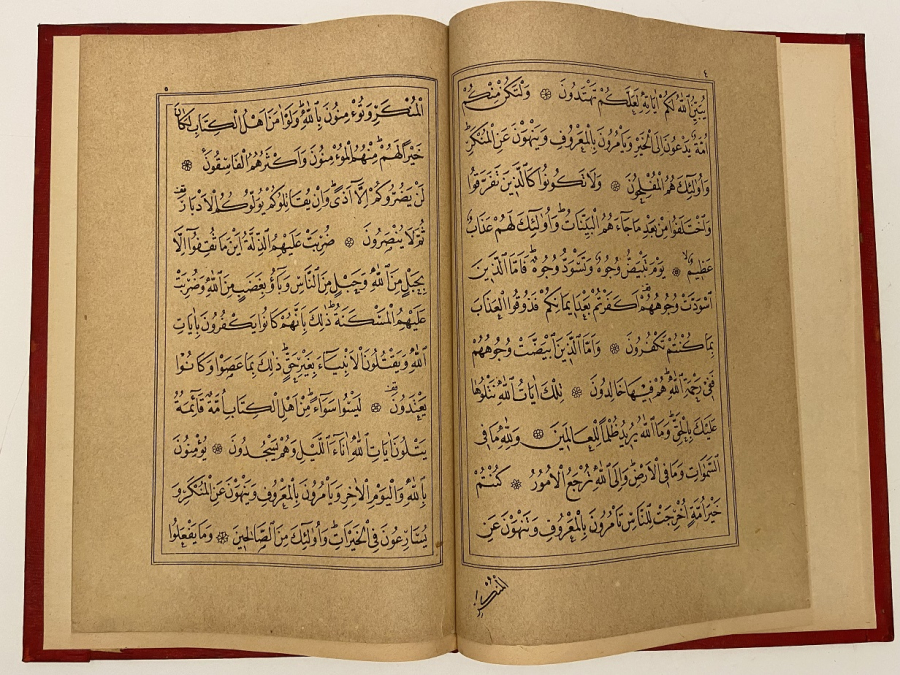 ٤
يُبَيِّنُ اللّٰهُ لَكُمْ اٰيَاتِهِ لَعَلَّكُمْ تَهْتَدُونَ ۞ وَلْتَكُنْ مِنْكُمْ
اُمَّةٌ يَدْعُونَ اِلَى الْخَيْرِ وَيَأْمُرُونَ بِالْمَعْرُوفِ وَيَنْهَوْنَ عَنِ الْمُنْكَرِ ط
وَاُولٰئِكَ هُمُ الْمُفْلِحُونَ ۞ وَلَا تَكُونُوا كَالَّذِينَ تَفَرَّقُوا
وَاخْتَلَفُوا مِنْ بَعْدِ مَا جَاءَهُمُ الْبَيِّنَاتُ ط وَاُولٰئِكَ لَهُمْ عَذَابٌ
عَظِيمٌ لا ۞ يَوْمَ تَبْيَضُّ وُجُوهٌ وَتَسْوَدُّ وُجُوهٌ ج فَاَمَّا الَّذِينَ
اسْوَدَّتْ وُجُوهُهُمْ قف اَكَفَرْتُمْ بَعْدَ اِيمَانِكُمْ فَذُوقُوا الْعَذَابَ
بِمَا كُنْتُمْ تَكْفُرُونَ ۞ وَاَمَّا الَّذِينَ ابْيَضَّتْ وُجُوهُهُمْ
فَفِي رَحْمَةِ اللّٰهِ ط هُمْ فِيهَا خَالِدُونَ ۞ تِلْكَ اٰيَاتُ اللّٰهِ نَتْلُوهَا
عَلَيْكَ بِالْحَقِّ ط وَمَا اللّٰهُ يُرِيدُ ظُلْمًا لِلْعَالَمِينَ ۞ وَلِلّٰهِ مَا فِي
السَّمٰوَاتِ وَمَا فِي الْاَرْضِ ط وَاِلَى اللّٰهِ تُرْجَعُ الْاُمُورُ ۞ كُنْتُمْ
خَيْرَ اُمَّةٍ اُخْرِجَتْ لِلنَّاسِ تَأْمُرُونَ بِالْمَعْرُوفِ وَتَنْهَوْنَ عَنِ
الْمُنْكَرِ
٥
الْمُنْكَرِ وَتُؤْمِنُونَ بِاللّٰهِ ط وَلَوْ اٰمَنَ اَهْلُ الْكِتَابِ لَكَانَ
خَيْرًا لَهُمْ ط مِنْهُمُ الْمُؤْمِنُونَ وَاَكْثَرُهُمُ الْفَاسِقُونَ ۞
لَنْ يَضُرُّوكُمْ اِلَّا اَذًى ط وَاِنْ يُقَاتِلُوكُمْ يُوَلُّوكُمُ الْاَدْبَارَ قف
ثُمَّ لَا يُنْصَرُونَ ۞ ضُرِبَتْ عَلَيْهِمُ الذِّلَّةُ اَيْنَ مَا ثُقِفُوا اِلَّا
بِحَبْلٍ مِنَ اللّٰهِ وَحَبْلٍ مِنَ النَّاسِ وَبَاؤُ بِغَضَبٍ مِنَ اللّٰهِ وَضُرِبَتْ
عَلَيْهِمُ الْمَسْكَنَةُ ط ذٰلِكَ بِاَنَّهُمْ كَانُوا يَكْفُرُونَ بِاٰيَاتِ
اللّٰهِ وَيَقْتُلُونَ الْاَنْبِيَاءَ بِغَيْرِ حَقٍّ ط ذٰلِكَ بِمَا عَصَوْا وَكَانُوا
يَعْتَدُونَ قف ۞ لَيْسُوا سَوَاءً ط مِنْ اَهْلِ الْكِتَابِ اُمَّةٌ قَائِمَةٌ
يَتْلُونَ اٰيَاتِ اللّٰهِ اٰنَاءَ اللَّيْلِ وَهُمْ يَسْجُدُونَ ۞ يُؤْمِنُونَ
بِاللّٰهِ وَالْيَوْمِ الْاٰخِرِ وَيَأْمُرُونَ بِالْمَعْرُوفِ وَيَنْهَوْنَ عَنِ الْمُنْكَرِ وَ
يُسَارِعُونَ فِي الْخَيْرَاتِ ط وَاُولٰئِكَ مِنَ الصَّالِحِينَ ۞ وَمَا يَفْعَلُوا